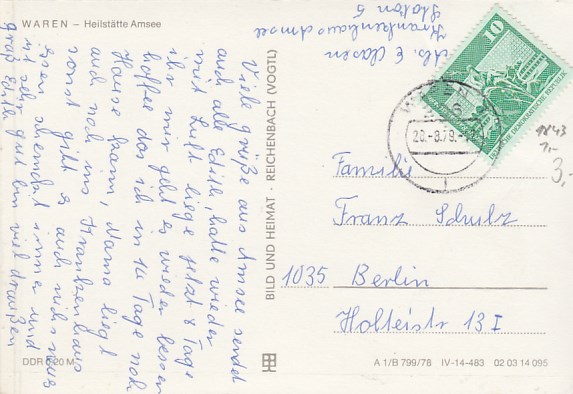 WAREN – Heilstätte Amsee
Abs. E Clasen
Krankenhaus Amsee
Station 5
10
DEUTSCHE DEMOKRATISCHE REPUBLIK
WAREN
28.-8.79.
1843
1,-
3,-
Viele Grüße aus Amsee sendet
euch alle Edith, hatte wieder
mit Luft liege jetzt 8 Tage
hier mir geht es wieder besser
hoffe das ich in 14 Tage nach
Hause kann, Mama liegt
auch noch im Krankenhaus
sonst gibt es auch nichts neues
Essen schmeckt immer und
ist sehr gut bin viel draußen
Gruß Edith
BILD UND HEIMAT · REICHENBACH (VOGTL)
Familie
Franz Schulz
1035 Berlin
Holteistr 13 I
DDR 0,20 M
A 1/B 799/78 IV-14-483 02 03 14 095